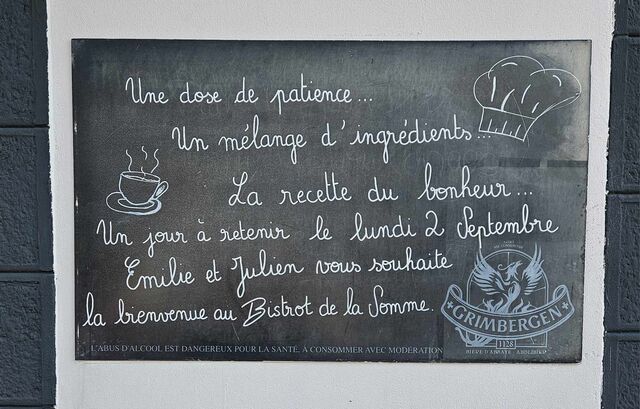 Une dose de patience...
Un mélange d'ingrédients...
La recette du bonheur...
Un jour à retenir le lundi 2 Septembre
Emilie et Julien vous souhaite
la bienvenue au Bistrot de la Somme.
GRIMBERGEN
1128
BIÈRE D'ABBAYE - ABDIJBIER
L'ABUS D'ALCOOL EST DANGEREUX POUR LA SANTÉ, À CONSOMMER AVEC MODÉRATION